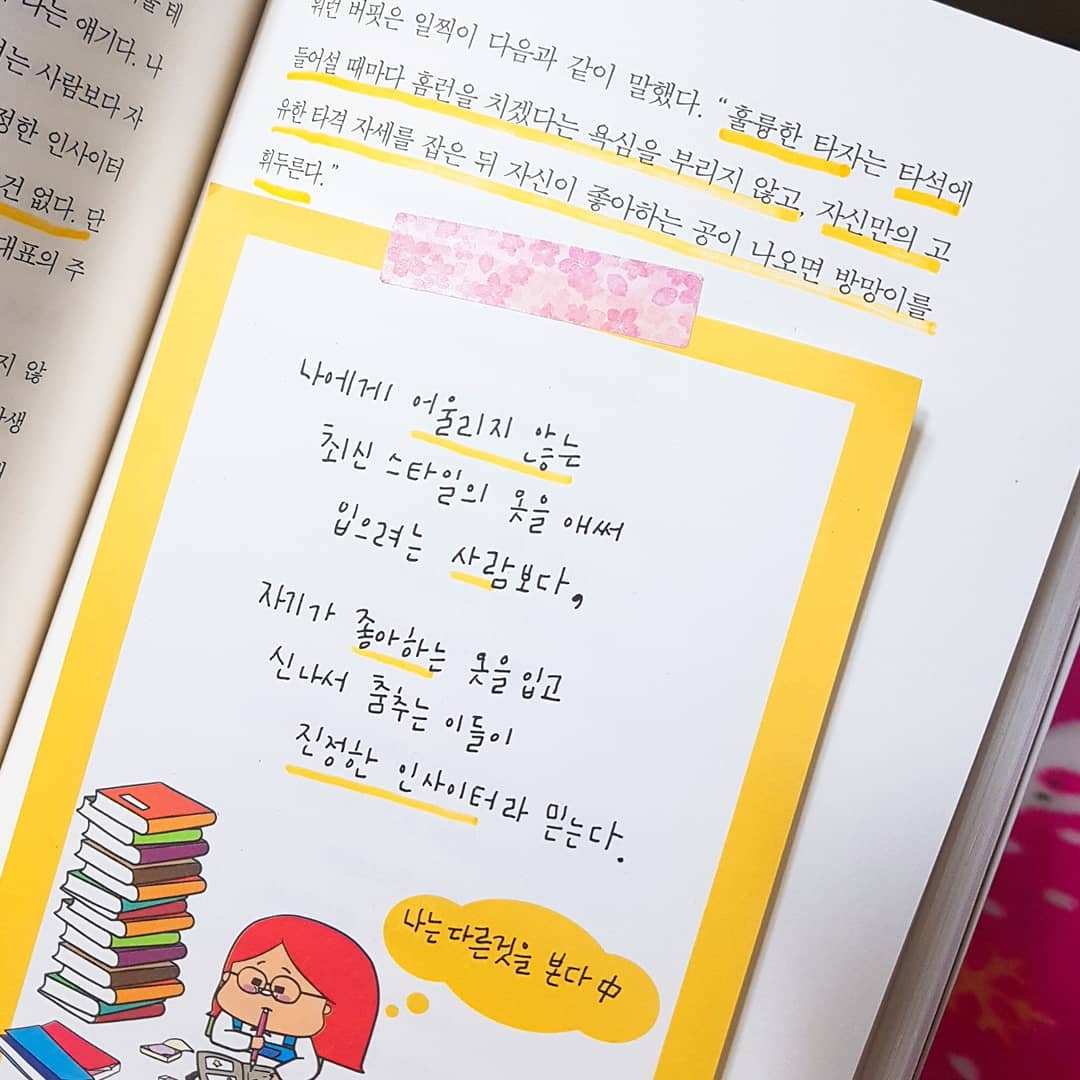 다는 얘기다. 나
는 사람보다 자
정한 인사이터
건 없다. 단
대표의 주
지 않
워런 버핏은 일찍이 다음과 같이 말했다. “훌륭한 타자는 타석에
들어설 때마다 홈런을 치겠다는 욕심을 부리지 않고, 자신만의 고
유한 타격 자세를 잡은 뒤 자신이 좋아하는 공이 나오면 방망이를
휘두른다.”
나에게 어울리지 않는
최신 스타일의 옷을 애써
입으려는 사람보다,
자기가 좋아하는 옷을 입고
신나서 춤추는 이들이
진정한 인사이터라 믿는다.
나는 다른것을 본다 中